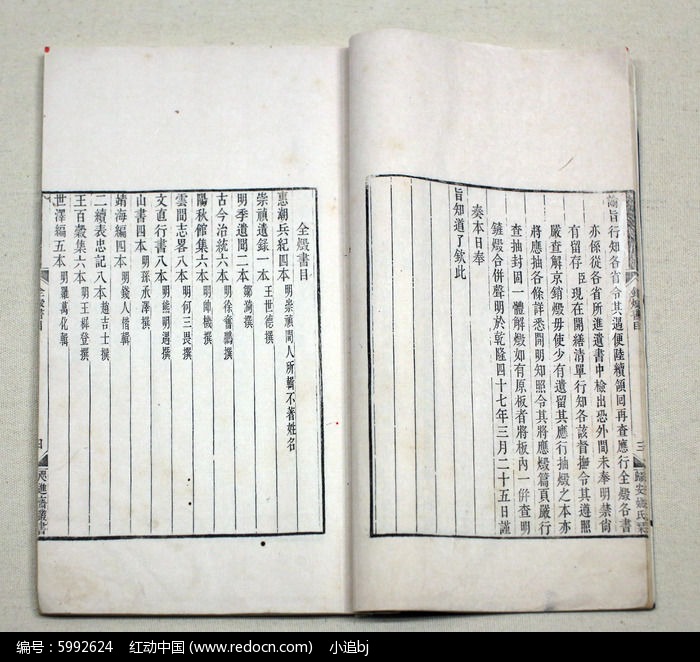 諭旨行知各省令其遇便陸續領回再查應行全燬各書
亦係從各省所進遺書中檢出恐外間未奉明禁尚
有留存臣現在開繕清單行知各該督撫令其遵照
嚴查解京銷燬毋使少有遺留其應行抽燬之本亦
將應抽各條詳悉開明知照令其將應燬篇頁嚴行
查抽封固一體解燬如有原板者將板內一併查明
鏟燬合併聲明於乾隆四十七年三月二十五日謹
奏本日奉
旨知道了欽此
三
歸安姚氏栞
全燬書目
惠潮兵紀四本 明崇禎間人所輯不著姓名
崇禎遺錄一本 王世德撰
明季遺聞二本 鄒漪撰
古今治統六本 明徐奮鵬撰
陽秋館集六本 明帥機撰
雲間志畧八本 明何三畏撰
文直行書八本 明熊明遇撰
山書四本 明孫承澤撰
靖海編四本 明錢人偕輯
二續表忠記八本 趙吉士撰
王百穀集六本 明王穉登撰
世澤編五本 明羅萬化輯
四
咫進齋叢書
编号：5992624 红动中国 (www.redocn.com) 小追bj